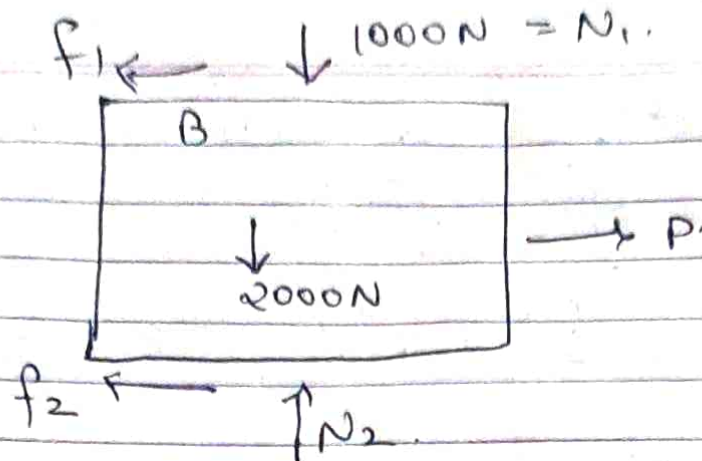 f1 1000N = N1.
B
P.
2000N
f2
N2.